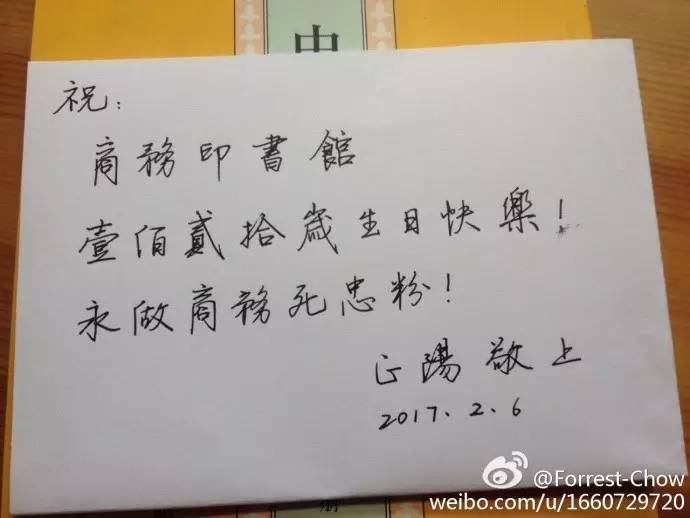 中
祝：
商務印書館
壹佰貳拾歲生日快樂！
永做商務死忠粉！
正陽敬上
2017.2.6
册
@Forrest-Chow
weibo.com/u/1660729720